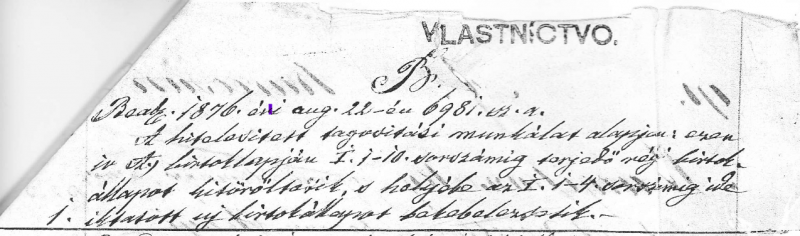 VLASTNÍCTVO.
B.
Beadt. 1876. évi aug. 22-én 6981. sz. a.
A hitelesitett tagositási munkálat alapján: ezen
ív A, birtoklapján I. 1-10. sorszámig terjedő régi birtok
állapot kitöröltetik, s helyébe az I. 1-4. sorszámig ide
1. iktatott uj birtokállapot bekebeleztetik.-